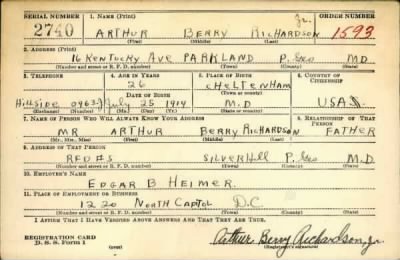 SERIAL NUMBER 1. NAME (Print) ORDER NUMBER
2740 ARTHUR BERRY RICHARDSON Jr. 1593
(First) (Middle) (Last)
2. ADDRESS (Print)
16 KENTUCKY AVE PARKLAND P. Geo MD
(Number and street or R. F. D. number) (Town) (County) (State)
3. TELEPHONE 4. AGE IN YEARS 5. PLACE OF BIRTH 6. COUNTRY OF CITIZENSHIP
26 CHELTENHAM
DATE OF BIRTH (Town or county)
Hillside 0963J July 25 1914 M.D USA
(Exchange) (Number) (Mo.) (Day) (Yr.) (State or country)
7. NAME OF PERSON WHO WILL ALWAYS KNOW YOUR ADDRESS 8. RELATIONSHIP OF THAT PERSON
MR ARTHUR BERRY RICHARDSON FATHER
(Mr., Mrs., Miss) (First) (Middle) (Last)
9. ADDRESS OF THAT PERSON
RFD #5 SILVER HILL P. Geo M.D.
(Number and street or R. F. D. number) (Town) (County) (State)
10. EMPLOYER'S NAME
EDGAR B HEIMER.
11. PLACE OF EMPLOYMENT OR BUSINESS
1220 NORTH CAPITOL D.C
(Number and street or R. F. D. number) (Town) (County) (State)
I AFFIRM THAT I HAVE VERIFIED ABOVE ANSWERS AND THAT THEY ARE TRUE.
REGISTRATION CARD
D. S. S. Form 1
Arthur Berry Richardson, Jr.